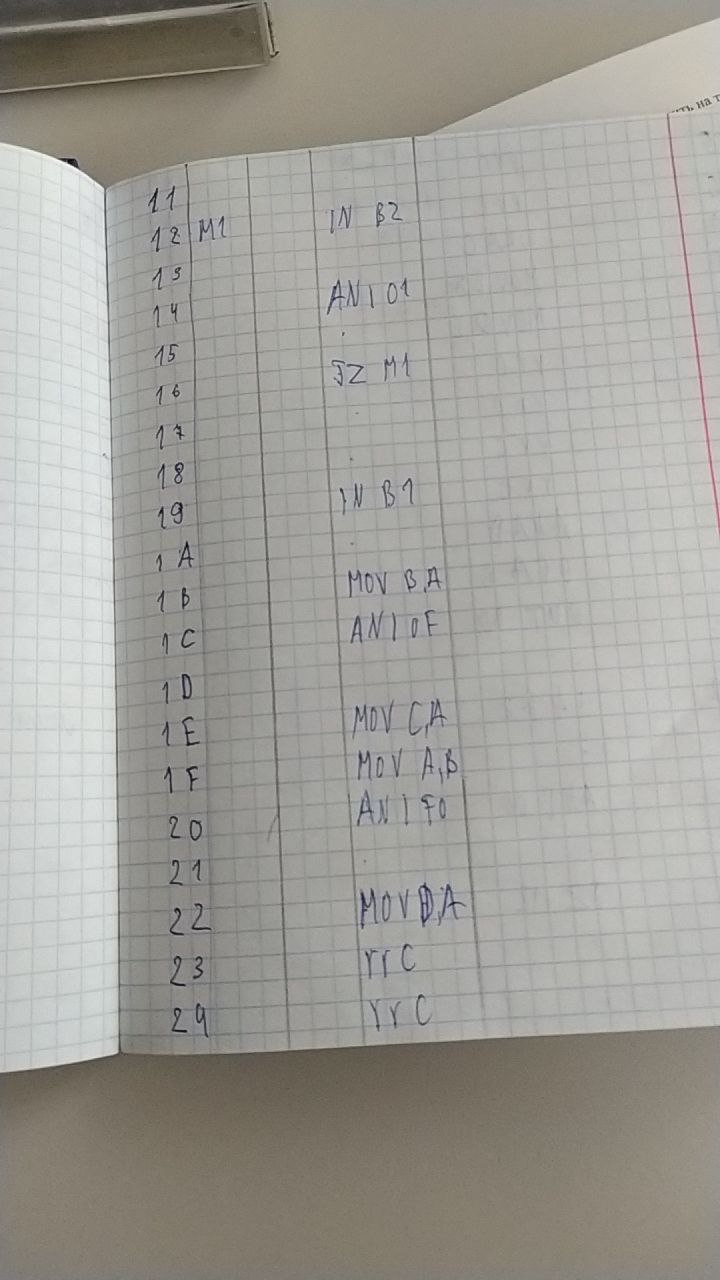 ть на т
11
12 M1 IN B2
13
14 ANI 01
15
16 JZ M1
17
18
19 IN B1
1A
1B MOV B,A
1C ANI 0F
1D
1E MOV C,A
1F MOV A,B
20 ANI F0
21
22 MOV D,A
23 rrc
24 rrc